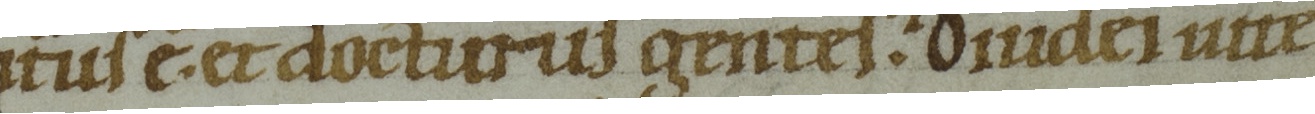 itus e. et docturus gentes. O iudei utre